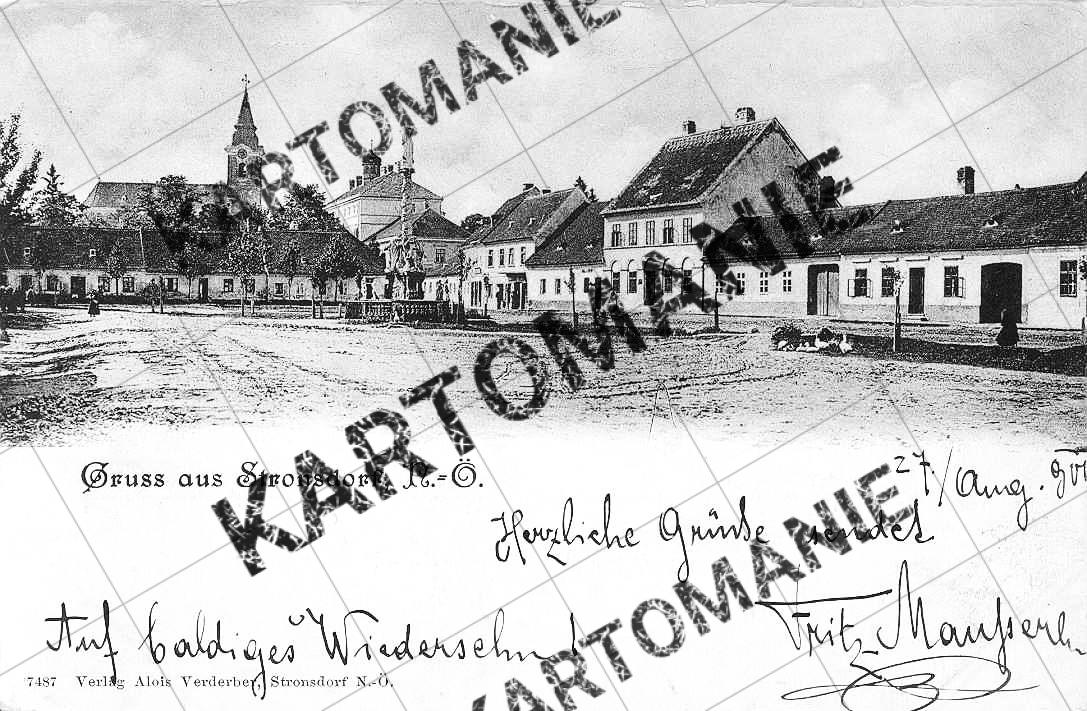 KARTOMANIE
KARTOMANIE
KARTOMANIE
KARTOMANIE
KARTOMANIE
Gruss aus Stronsdorf, N.-Ö.
27./Aug.
Herzliche Grüße sendet
Auf baldiges Wiedersehn!
Fritz
7487 Verlag Alois Verderber, Stronsdorf N.-Ö.